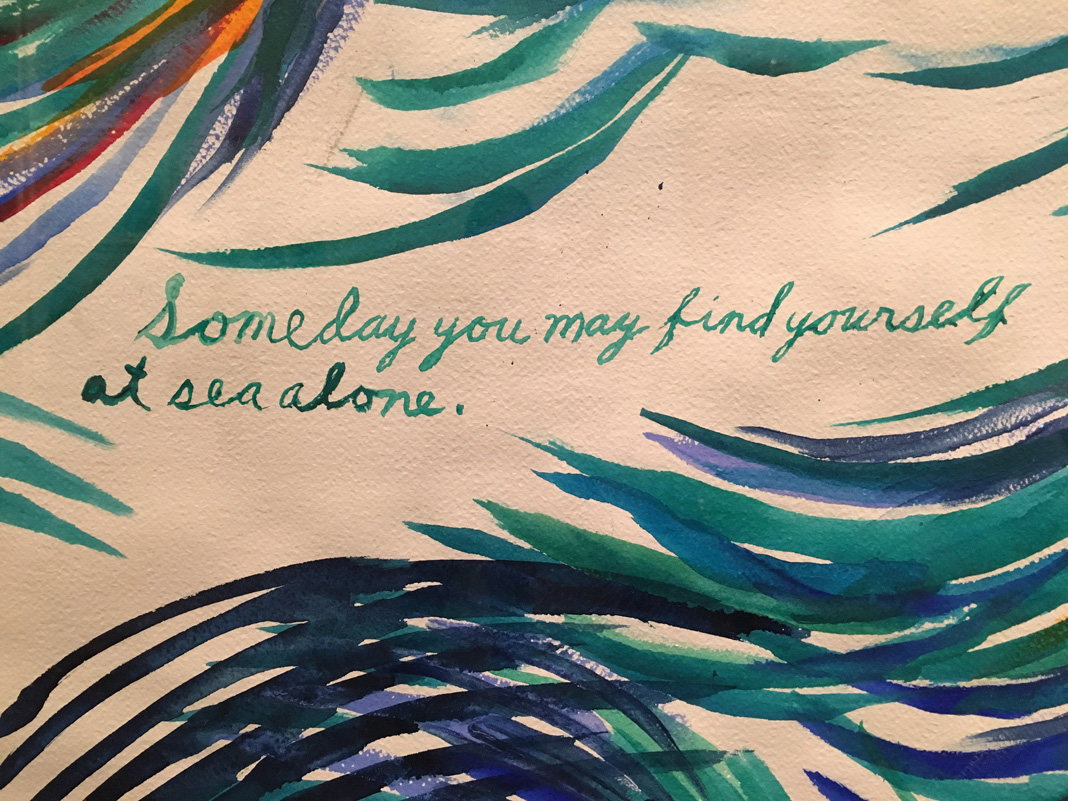 Someday you may find yourself
at sea alone.